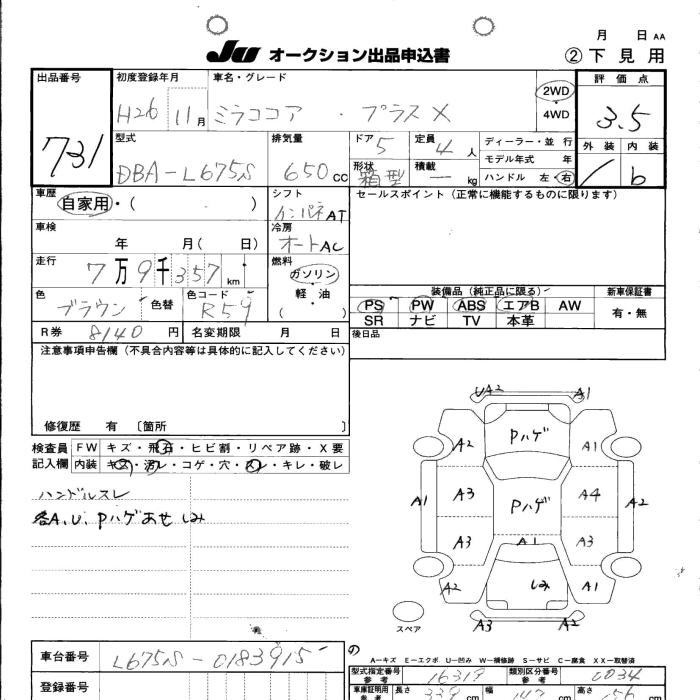 月 日 AA
JU オークション出品申込書 ②下見用
出品番号 初度登録年月 車名・グレード 評価点
731 H26 11月 ミラココア ・ プラスX 2WD・4WD 3.5
型式 排気量 ドア 5 定員 4人 ディーラー・並行 外装 内装
DBA-L675S 650cc 形状 箱型 積載 ー kg モデル年式 年
ハンドル 左・右 / b
車歴 自家用・( ) シフト AT セールスポイント(正常に機能するものに限ります)
車検 年 月( 日) 冷房 オートAC
走行 7万9千357km 燃料 ガソリン・軽油 ( )
装備品(純正品に限る) 新車保証書
色 ブラウン 色替 色コード R59 PS PW ABS エアB AW 有・無
SR ナビ TV 本革
R券 8140円 名変期限 月 日 後日品
注意事項申告欄(不具合内容等は具体的に記入してください)
修復歴 有 〔箇所 〕
検査員記入欄 FW キズ・飛石・ヒビ割・リペア跡・X要
内装 キズ・汚レ・コゲ・穴・スレ・キレ・破レ
ハンドルスレ
各A、U、Pハゲあせしみ
UA2 A1
A2 Pハゲ A1
A1 A3 Pハゲ A4 A2
A3 A1 A3
A2 しみ A1
スペア A3 A2
の
A-キズ E-エクボ U-凹み W-補修跡 S-サビ C-腐食 XX-取替済
車台番号 L675S-0183915
型式指定番号 参考 16319 類別区分番号 参考 0034
登録番号 車庫証明用 参考 長さ 339cm 幅 147cm 高さ 156cm